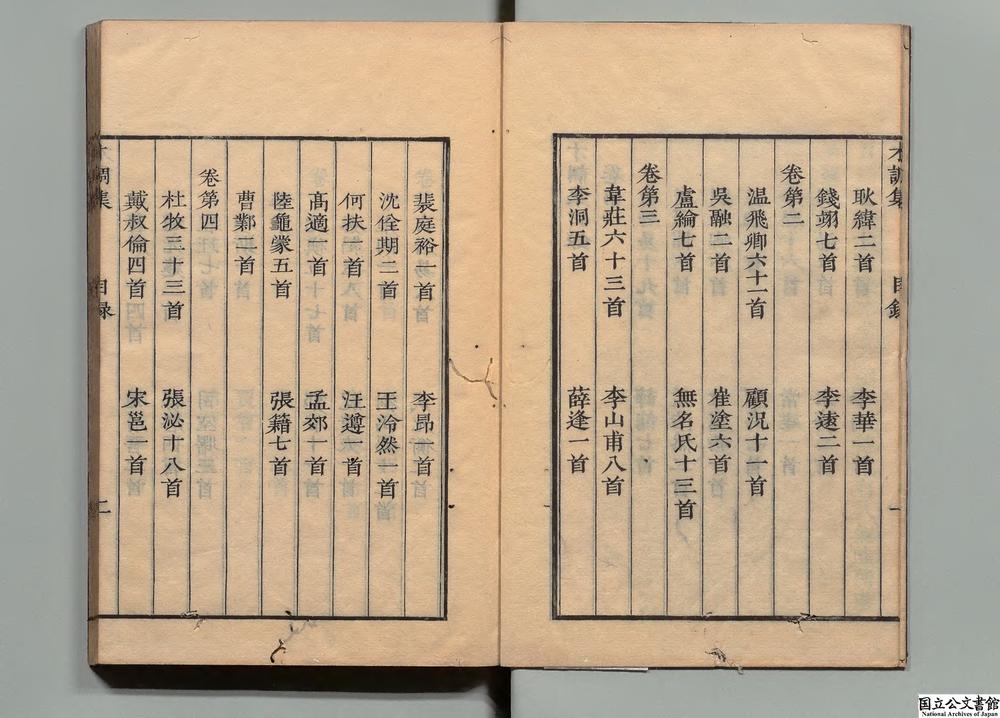 才調集 目録 一
耿緯二首 李華一首
錢翊七首 李遠二首
卷第二
温飛卿六十一首 顧况十一首
吳融二首 崔塗六首
盧綸七首 無名氏十三首
卷第三
韋莊六十三首 李山甫八首
李洞五首 薛逢一首
裴庭裕一首 李昂一首
沈佺期二首 王泠然一首
何扶一首 汪遵一首
高適一首 孟郊一首
陸龜蒙五首 張籍七首
曹鄴二首
卷第四
杜牧三十三首 張泌十八首
戴叔倫四首 宋邕一首
才調集 目録 二
国立公文書館
National Archives of Japan